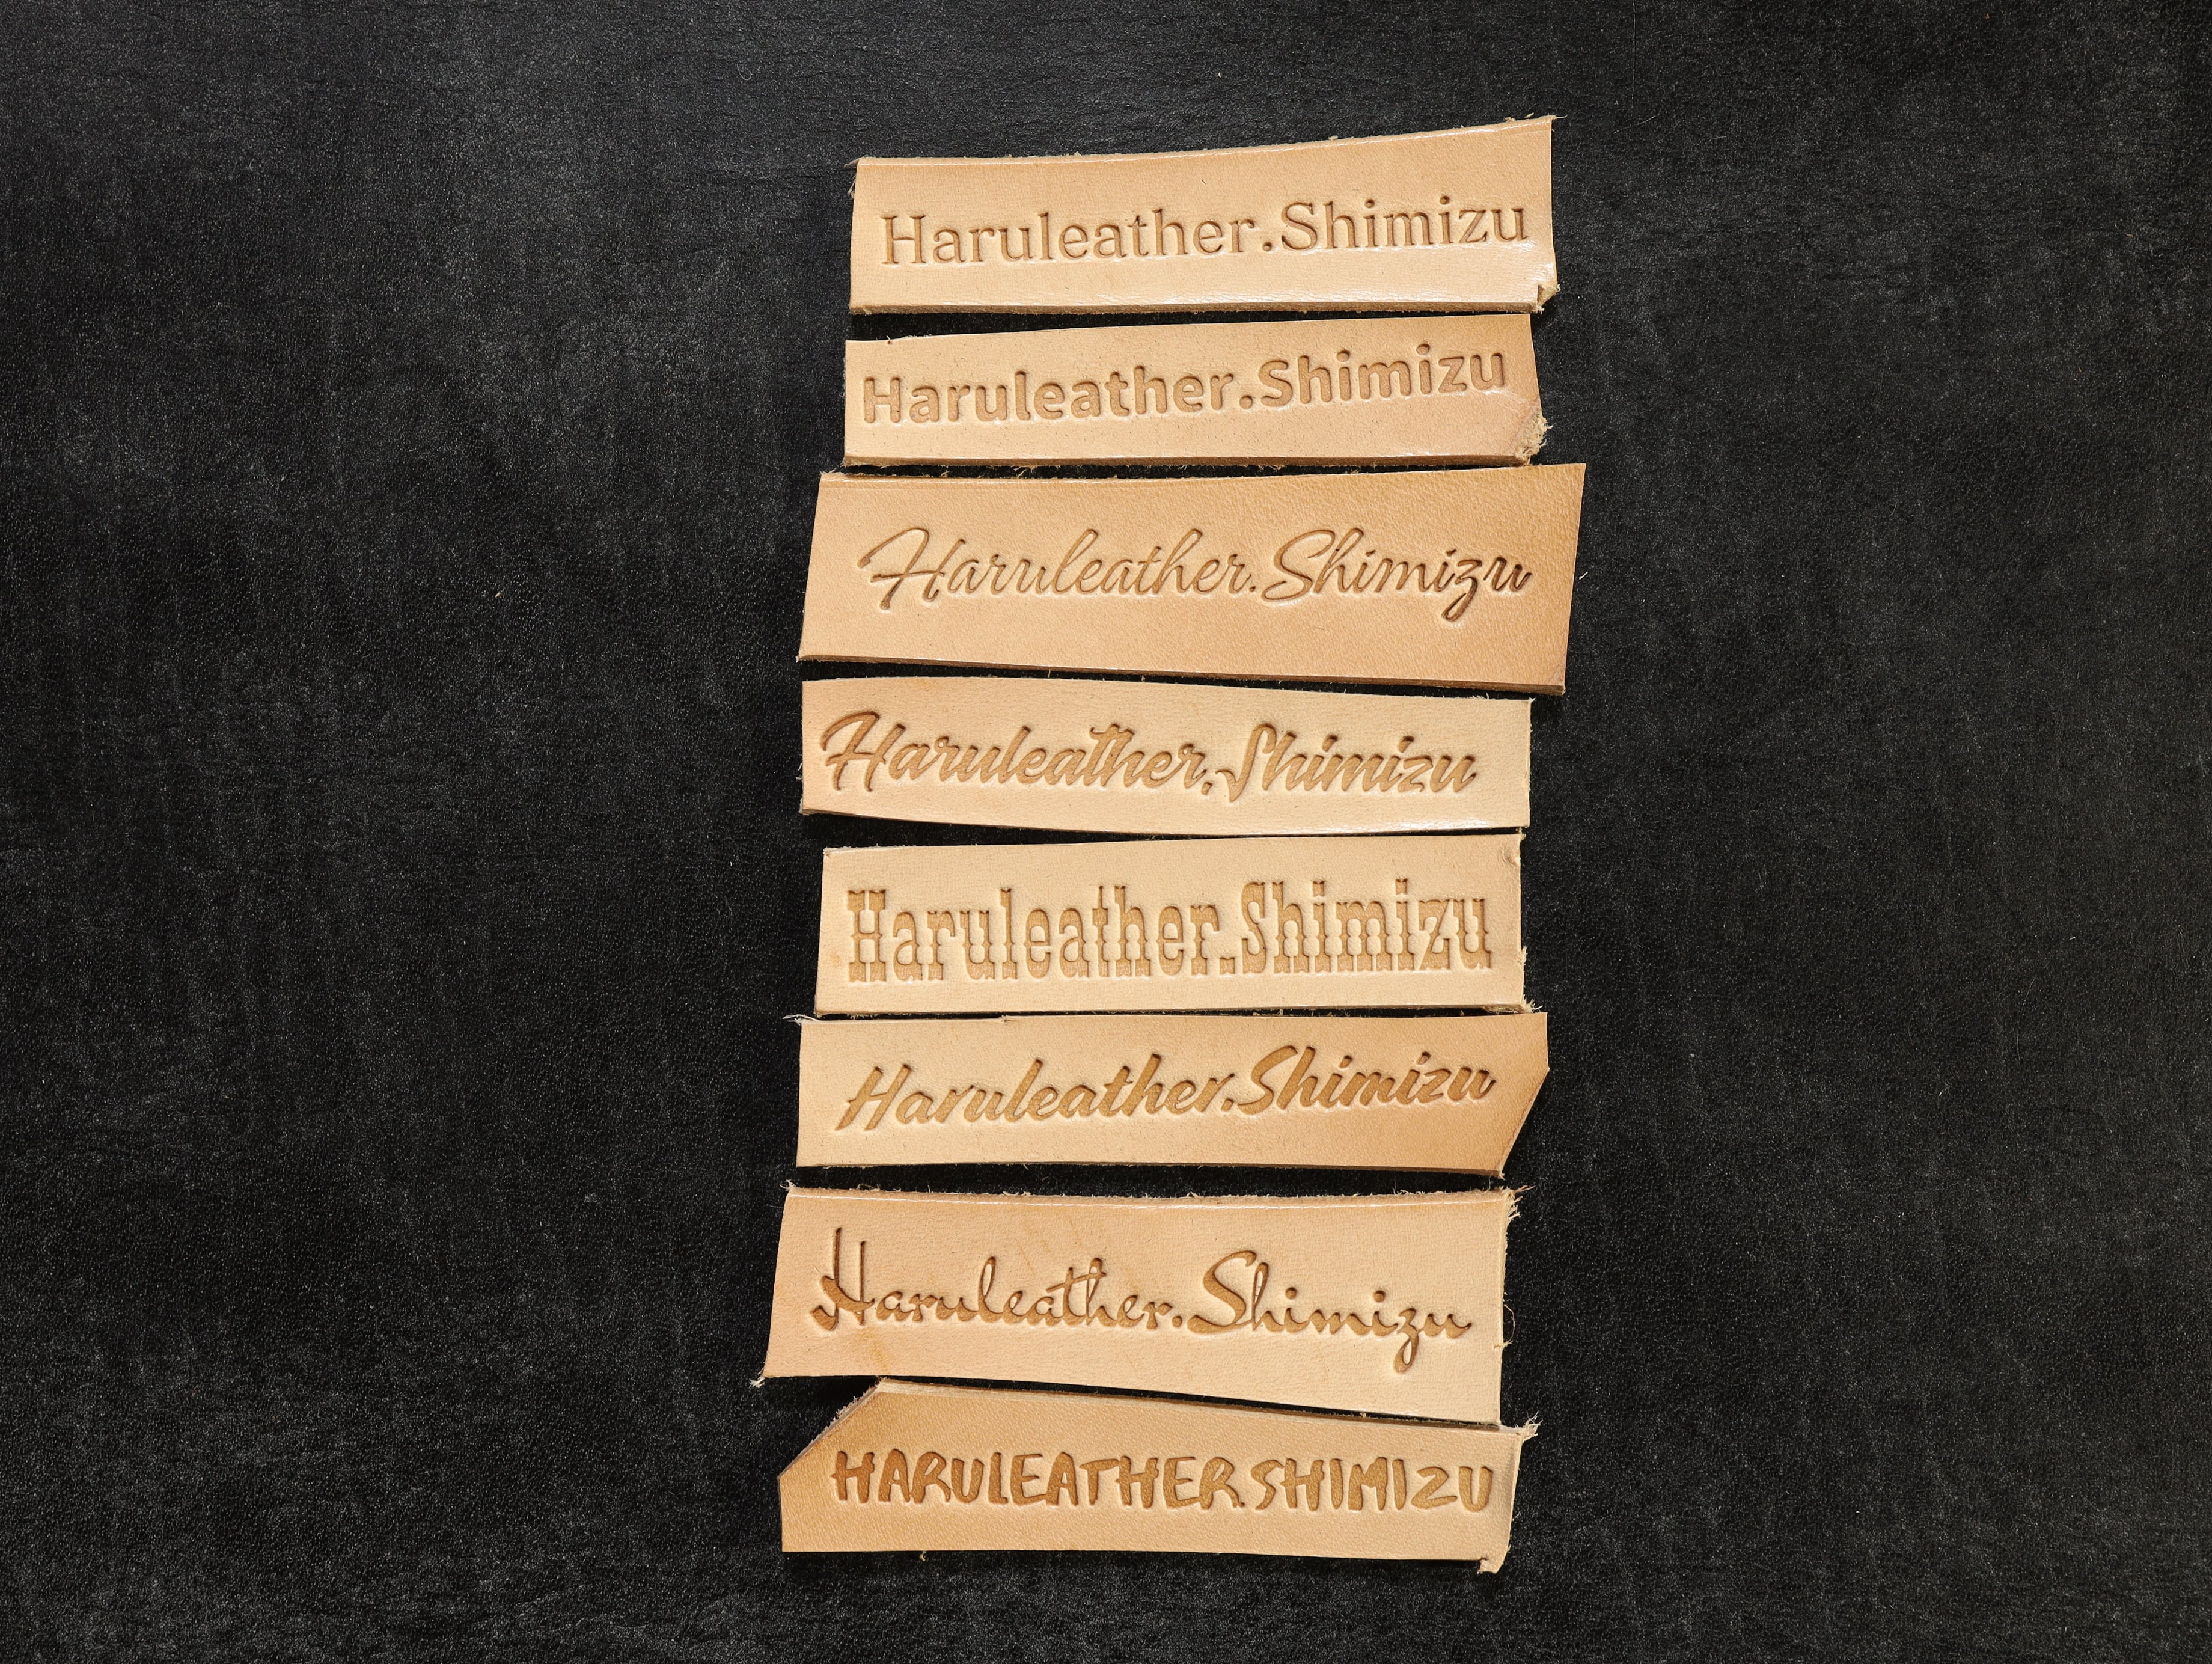 Haruleather.Shimizu
Haruleather.Shimizu
Haruleather.Shimizu
Haruleather.Shimizu
Haruleather.Shimizu
Haruleather.Shimizu
Haruleather.Shimizu
HARULEATHER.SHIMIZU